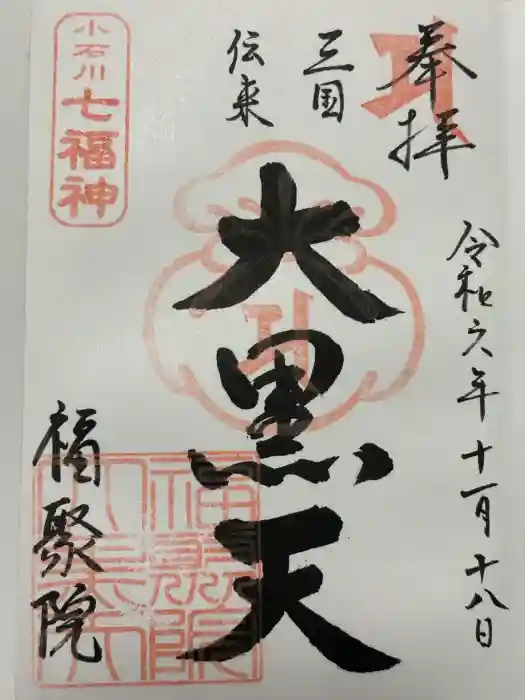 奉拝
令和六年十一月十八日
三国
伝来
大黒天
小石川
七福神
福聚院
福聚院